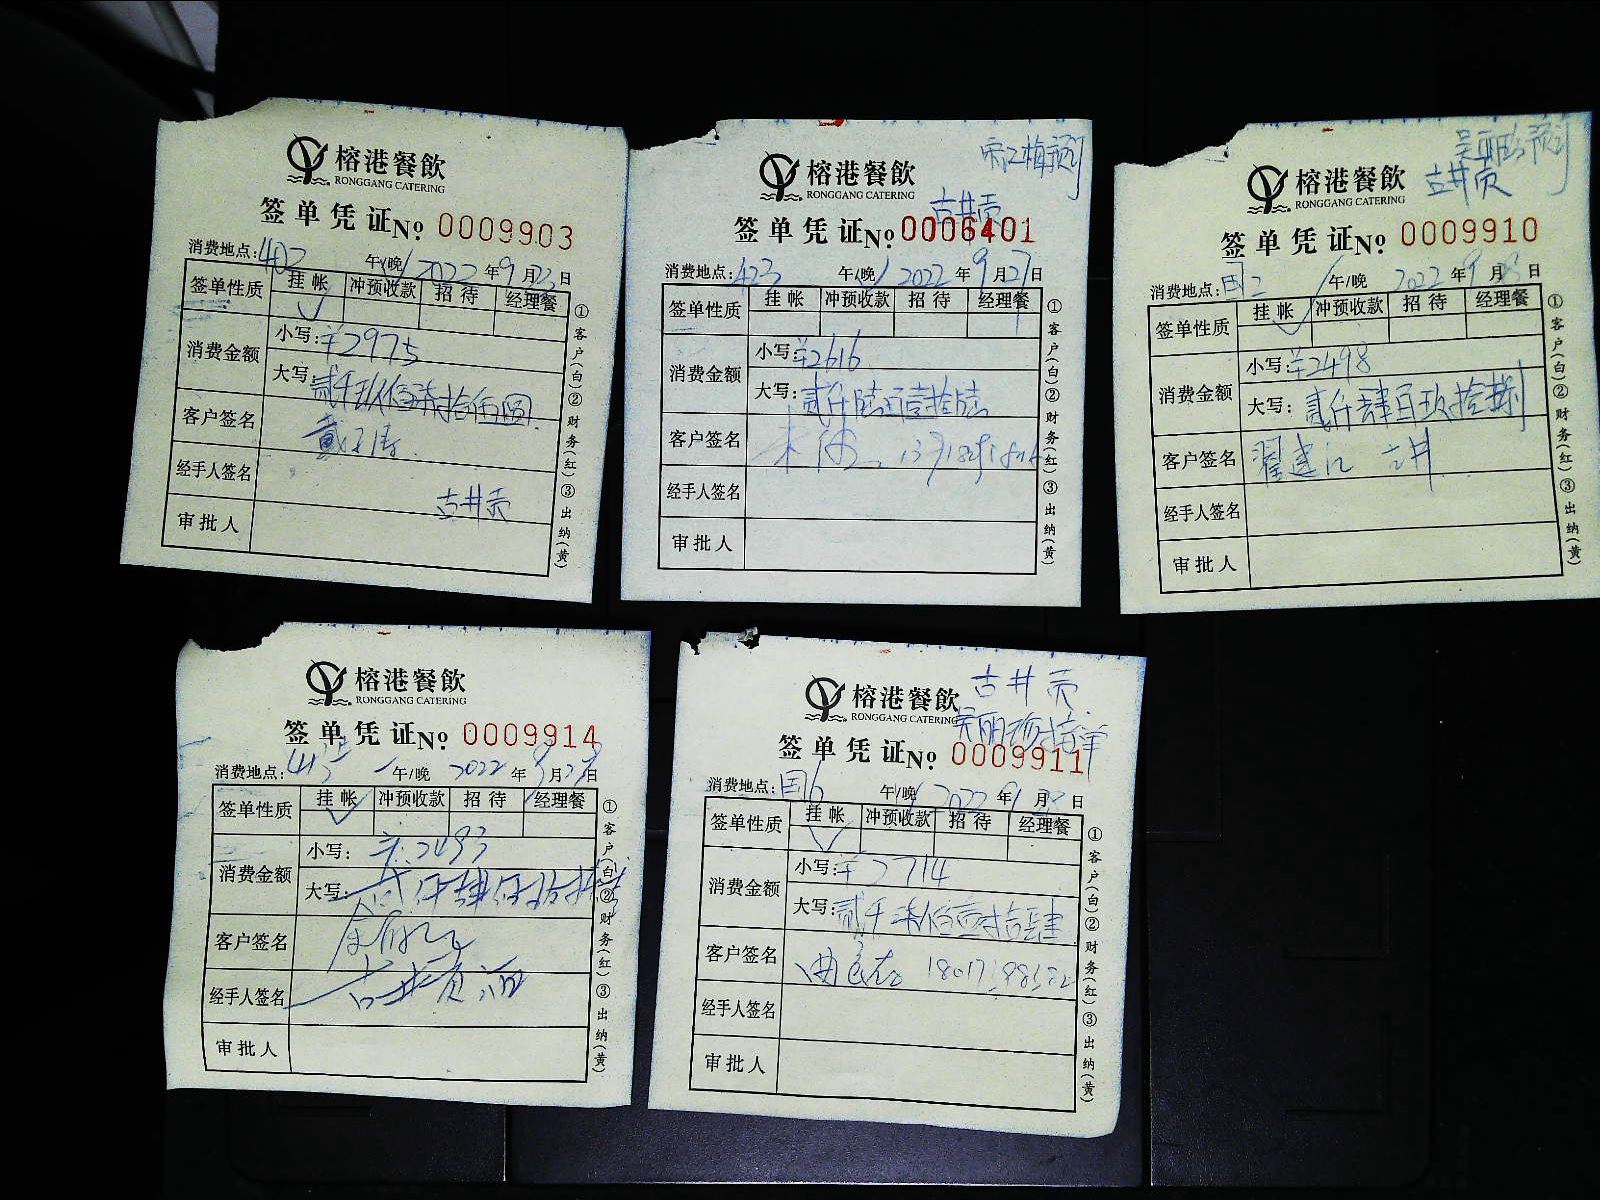 榕港餐飲
RONGGANG CATERING
签单凭证 No. 0009903
消费地点: 402 午/晚 2022年9月23日
签单性质 挂帐 冲预收款 招待 经理餐
消费金额 小写: ¥2975
大写: 贰仟玖佰柒拾伍圆
客户签名
经手人签名
古井贡
审批人
①客户(白)②财务(红)③出纳(黄)
榕港餐飲
RONGGANG CATERING
古井贡
签单凭证 No. 0006401
消费地点: 423 午/晚 2022年9月27日
签单性质 挂帐 冲预收款 招待 经理餐
消费金额 小写: ¥2616
大写: 贰仟陆百壹拾陆
客户签名
经手人签名
审批人
①客户(白)②财务(红)③出纳(黄)
榕港餐飲
RONGGANG CATERING
古井贡
签单凭证 No. 0009910
消费地点: 国2 午/晚 2022年9月 日
签单性质 挂帐 冲预收款 招待 经理餐
消费金额 小写: ¥2498
大写: 贰仟肆百玖拾捌
客户签名 翟建江 古井
经手人签名
审批人
①客户(白)②财务(红)③出纳(黄)
榕港餐飲
RONGGANG CATERING
签单凭证 No. 0009914
消费地点: 午/晚 2022年9月 日
签单性质 挂帐 冲预收款 招待 经理餐
消费金额 小写: ¥:2493
大写:
客户签名
经手人签名 古井贡酒
审批人
①客户(白)②财务(红)③出纳(黄)
古井贡
榕港餐飲
RONGGANG CATERING
签单凭证 No. 0009911
消费地点: 国6 午/晚 2022年9月 日
签单性质 挂帐 冲预收款 招待 经理餐
消费金额 小写: ¥2714
大写: 贰仟柒佰壹拾肆
客户签名
经手人签名
审批人
①客户(白)②财务(红)③出纳(黄)